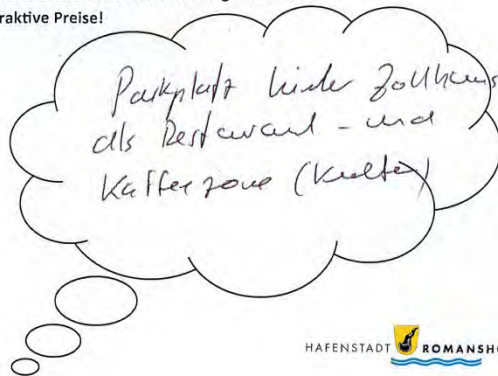 raktive Preise!
Parkplatz hinter Zollhaus
als Restaurant - und
Kaffeezone (Kultur)
HAFENSTADT ROMANSH